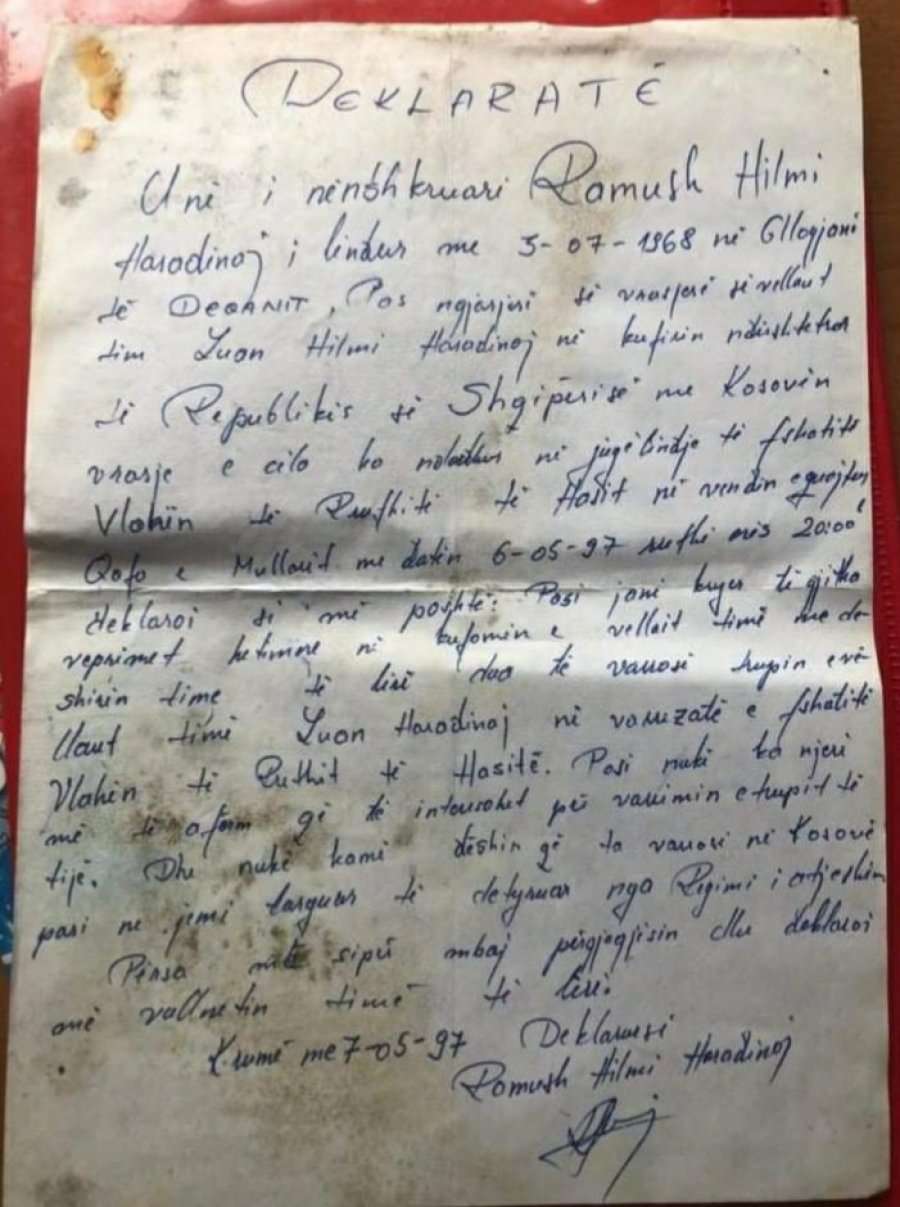 DEKLARATË
Unë i nënshkruari Ramush Hilmi
Haradinaj i lindur me 3-07-1968 në Gllogjani
të DEÇANIT, Pas ngjarjeri së vrasjerë së vellaut
tim Luan Hilmi Haradinaj në kufirin ndërshtetror
të Republikës së Shqipërisë me Kosovën
vrasje e cila ka ndodhur në jugëlindje të fshatitë
Vlahën të të Hasit në vendin equajtur
Qafa e Mullarit me datën 6-05-97 rrethi orës 20:00
deklaroi si më poshtë: Pasi janë kryer të gjitha
veprimet hetimore në kufomën e vellait timë me dë-
shirën time të lirë dua të varrosi trupin e vë-
llaut timë Luan Haradinaj në varrezatë e fshatitë
Vlahën të Ruthit të Hasitë. Pasi nukë ka njeri
më të afërm që të interesohet për varrimin e trupit të
tijë. Dhe nukë kamë dëshirë që ta varrosi në Kosovë
pasi ne jemi larguar të detyruar nga Regimi i atjeshëm
Përsa më sipër mbaj përgjegjësin dhe deklaroi
më vullnetin timë të lirë.
Krumë me 7-05-97 Deklaruesi
Ramush Hilmi Haradinaj